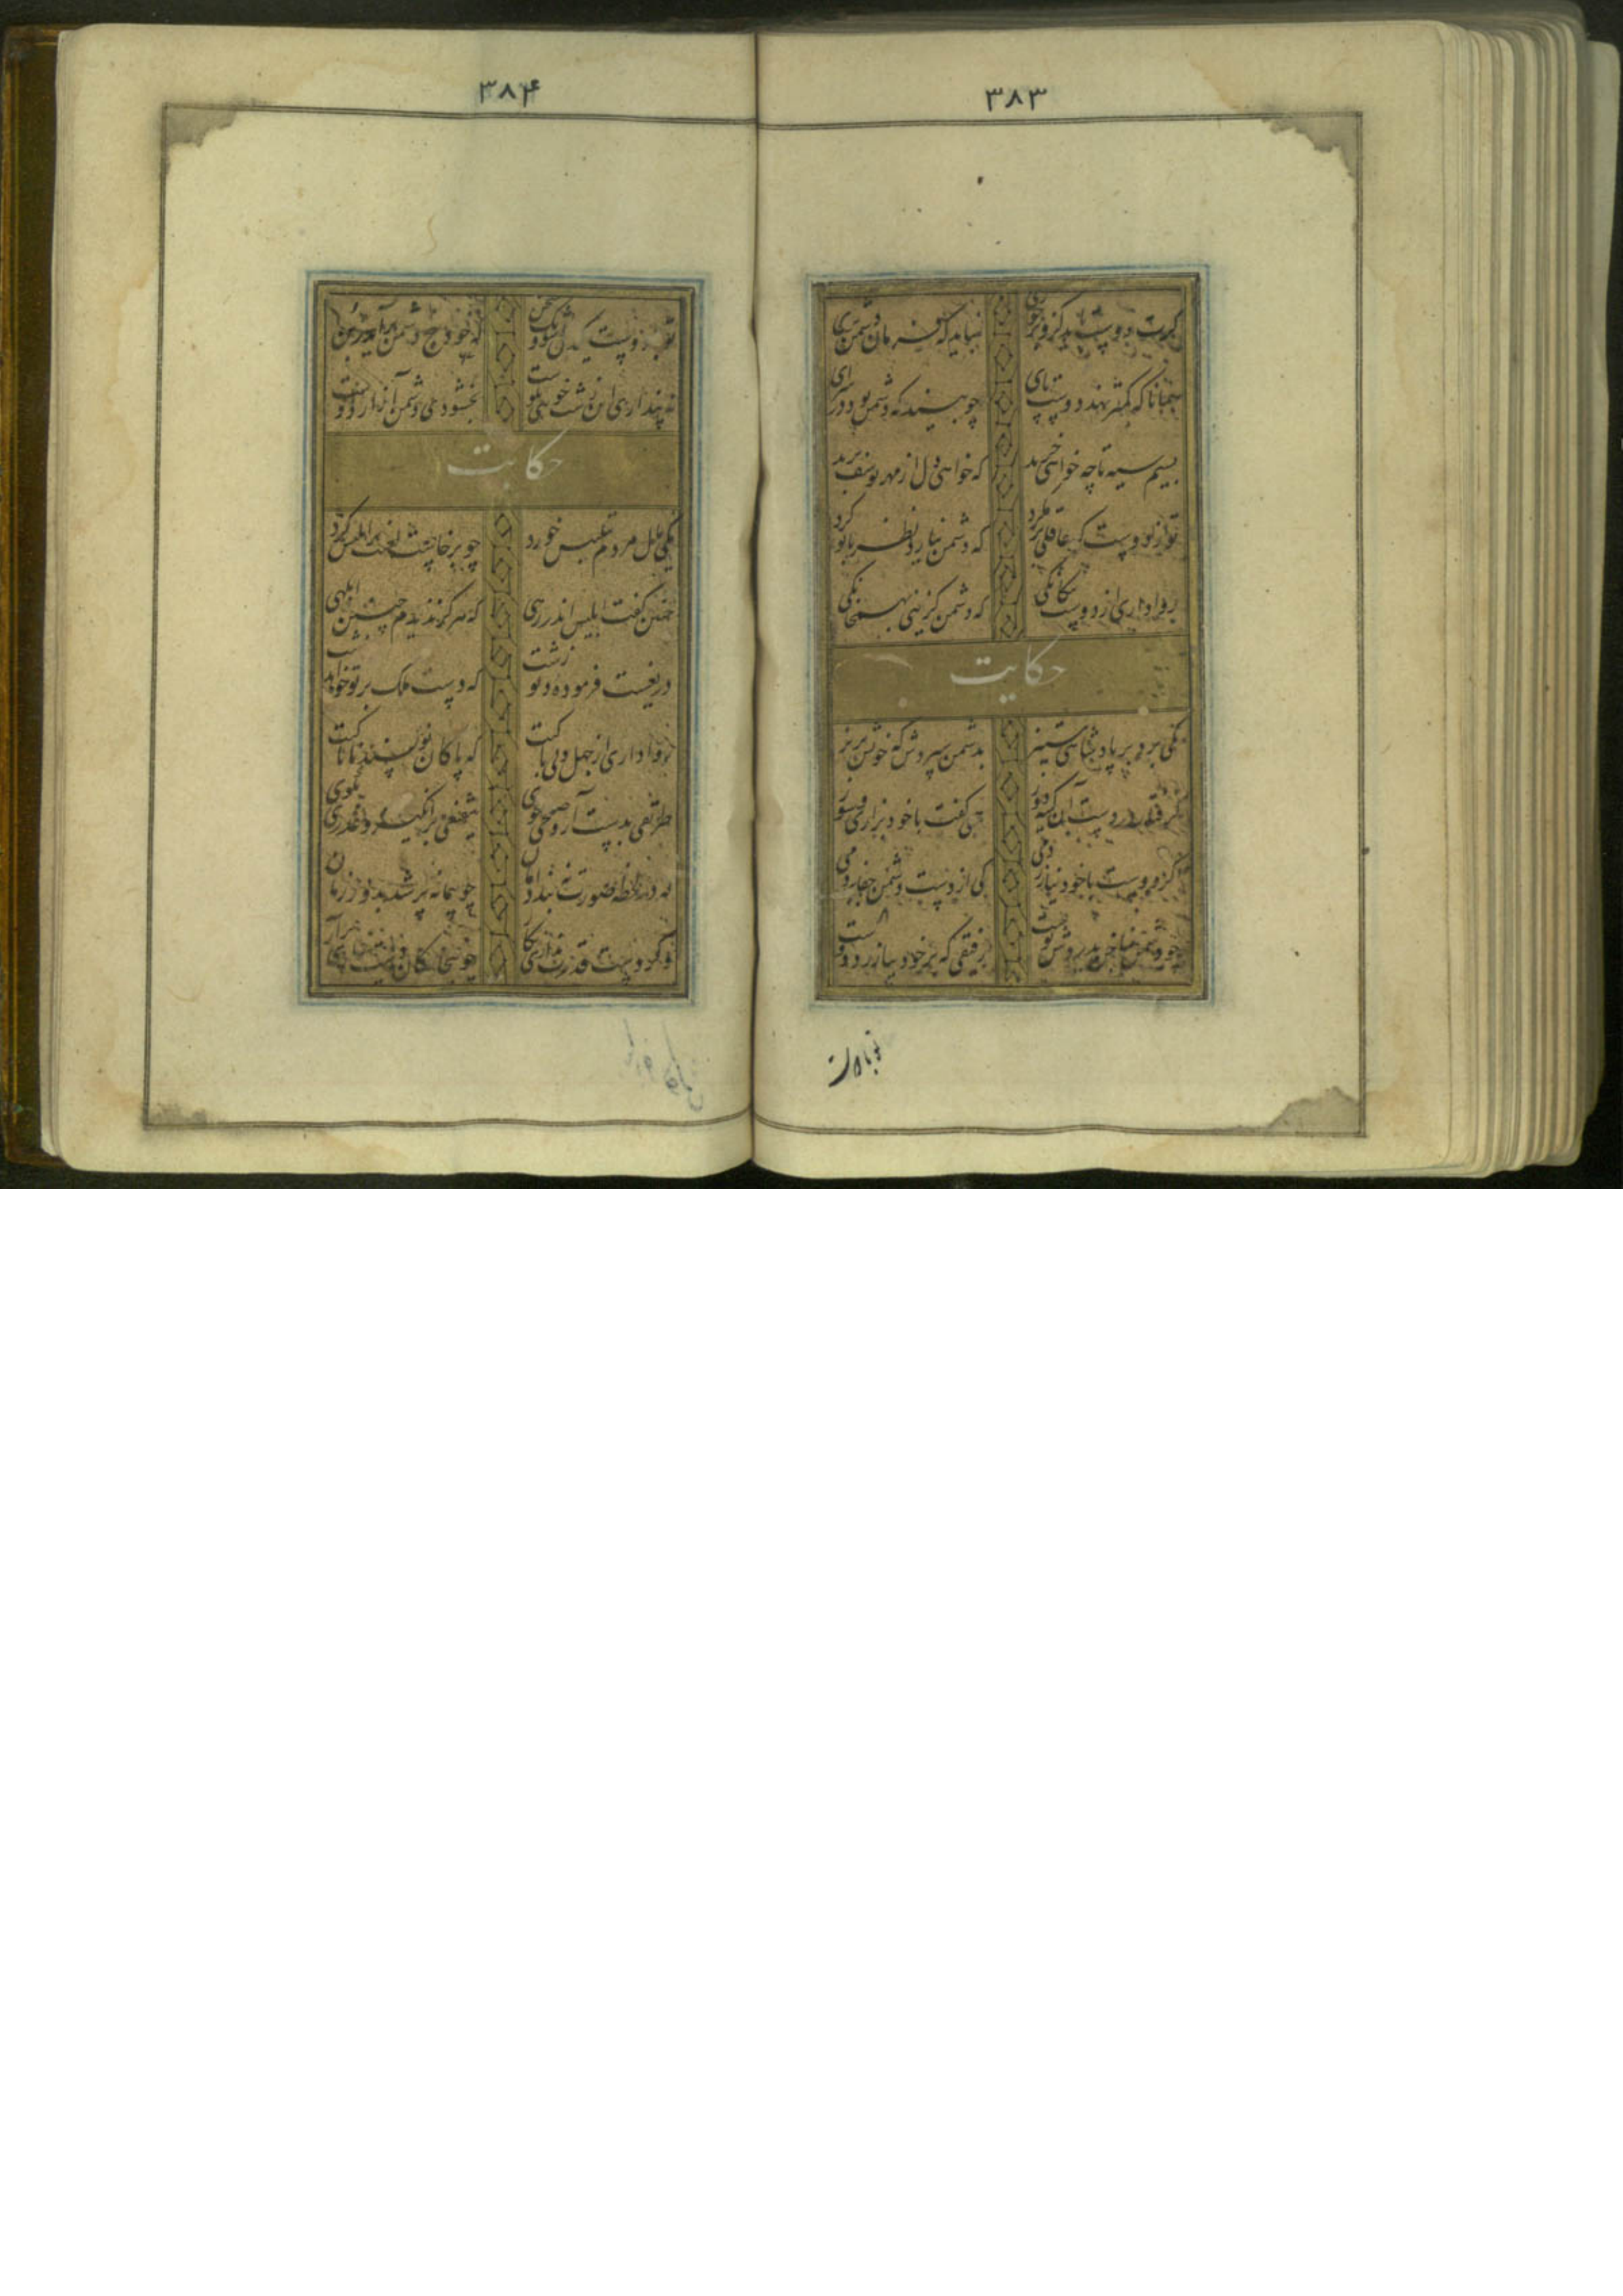 ۳۸۳
گرت دوست باید کزو بر خوری نباید که فرمان دشمن بری
همانا که کمتر نهد دوست پای چو بیند که دشمن بود در سرای
بسیم سیه تا چه خواهی خرید که خواهی دل از مهر یوسف برید
تو از دوست گر عاقلی بر مگرد که دشمن نیارد نظر با تو کرد
روا داری از دوست بیگانگی که دشمن گزینی بهمخانگی
حکایت
یکی برد بر پادشاهی ستیز بدشمن سپردش که خونش بریز
گرفتار در دست آن کینه‌توز همی گفت با خود بزاری و سوز
اگر دوست با خود نیازردمی کی از دست دشمن جفا بردمی
بدرد دشمن پوست رفیقی که بر خود بیازرد دوست
تو با دوست
۳۸۴
تو با دوست یکدل شو و یک سخن که خود بیخ دشمن برآید ز بن
نه پندارم این زشت نامی نکوست بخشنودی دشمن آزار دوست
حکایت
یکی مال مردم بتلبیس خورد چو برخاست لعنت بر ابلیس کرد
چنین گفت ابلیس اندر رهی که هرگز ندیدم چنین ابلهی
دریغست فرموده دیو زشت که دست ملک بر تو خواهد نبشت
روا داری از جهل و بی باکیت که پاکان نویسند ناپاکیت
طریقی بدست آر و صلحی بجوی شفیعی برانگیز و عذری بگوی
که یک لحظه صورت نبندد امان چو پیمانه پر شد بدور زمان
وگر دست قدرت نداری بکار چو بیچارگان دست زاری برآر